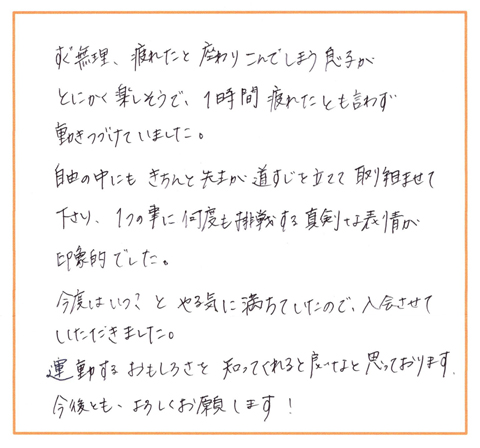 すぐ無理、疲れたと座わりこんでしまう息子が
とにかく楽しそうで、1時間疲れたとも言わず
動きつづけていました。
自由の中にもきちんと先生が道すじを立てて取り組ませて
下さり、1つの事に何度も挑戦する真剣な表情が
印象的でした。
今度はいつ?とやる気に満ちていたので、入会させて
いただきました。
運動するおもしろさを知ってくれると良いなと思っております。
今後とも、よろしくお願します!